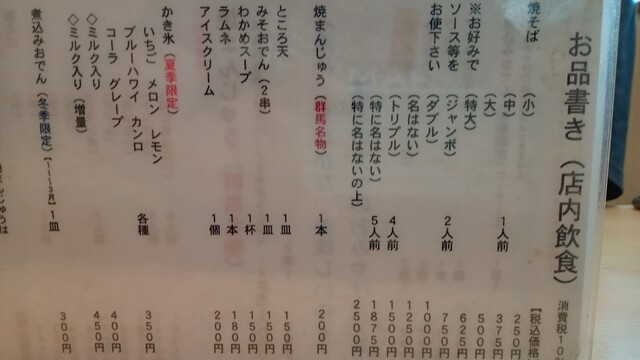 お品書き（店内飲食） 消費税10
【税込価格
焼そば （小） 250円
（中） 1人前 375円
（大） 500円
※お好みで （特大） 625円
ソース等を （ジャンボ） 2人前 750円
お使下さい （ダブル） 1000円
（名はない） 1250円
（トリプル） 4人前 1500円
（特に名はない） 5人前 1875円
（特に名はないの上） 2500円
焼まんじゅう（群馬名物） 1本 200円
ところ天 1皿 150円
みそおでん（2串） 1皿 150円
わかめスープ 1杯 150円
ラムネ 1本 180円
アイスクリーム 1個 200円
かき氷（夏季限定）
いちご メロン レモン 各種 350円
ブルーハワイ カンロ
コーラ グレープ
◇ミルク入り 400円
◇ミルク入り（増量） 450円
煮込みおでん（冬季限定）【11〜3月】1皿 300円